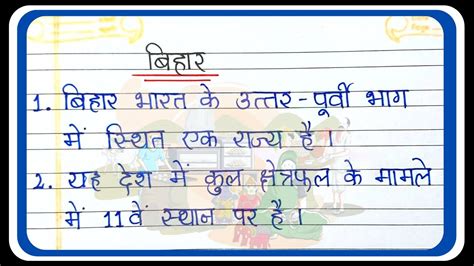 बिहार
1. बिहार भारत के उत्तर-पूर्वी भाग
में स्थित एक राज्य है।
2. यह देश में कुल क्षेत्रफल के मामले
में 11वें स्थान पर है।